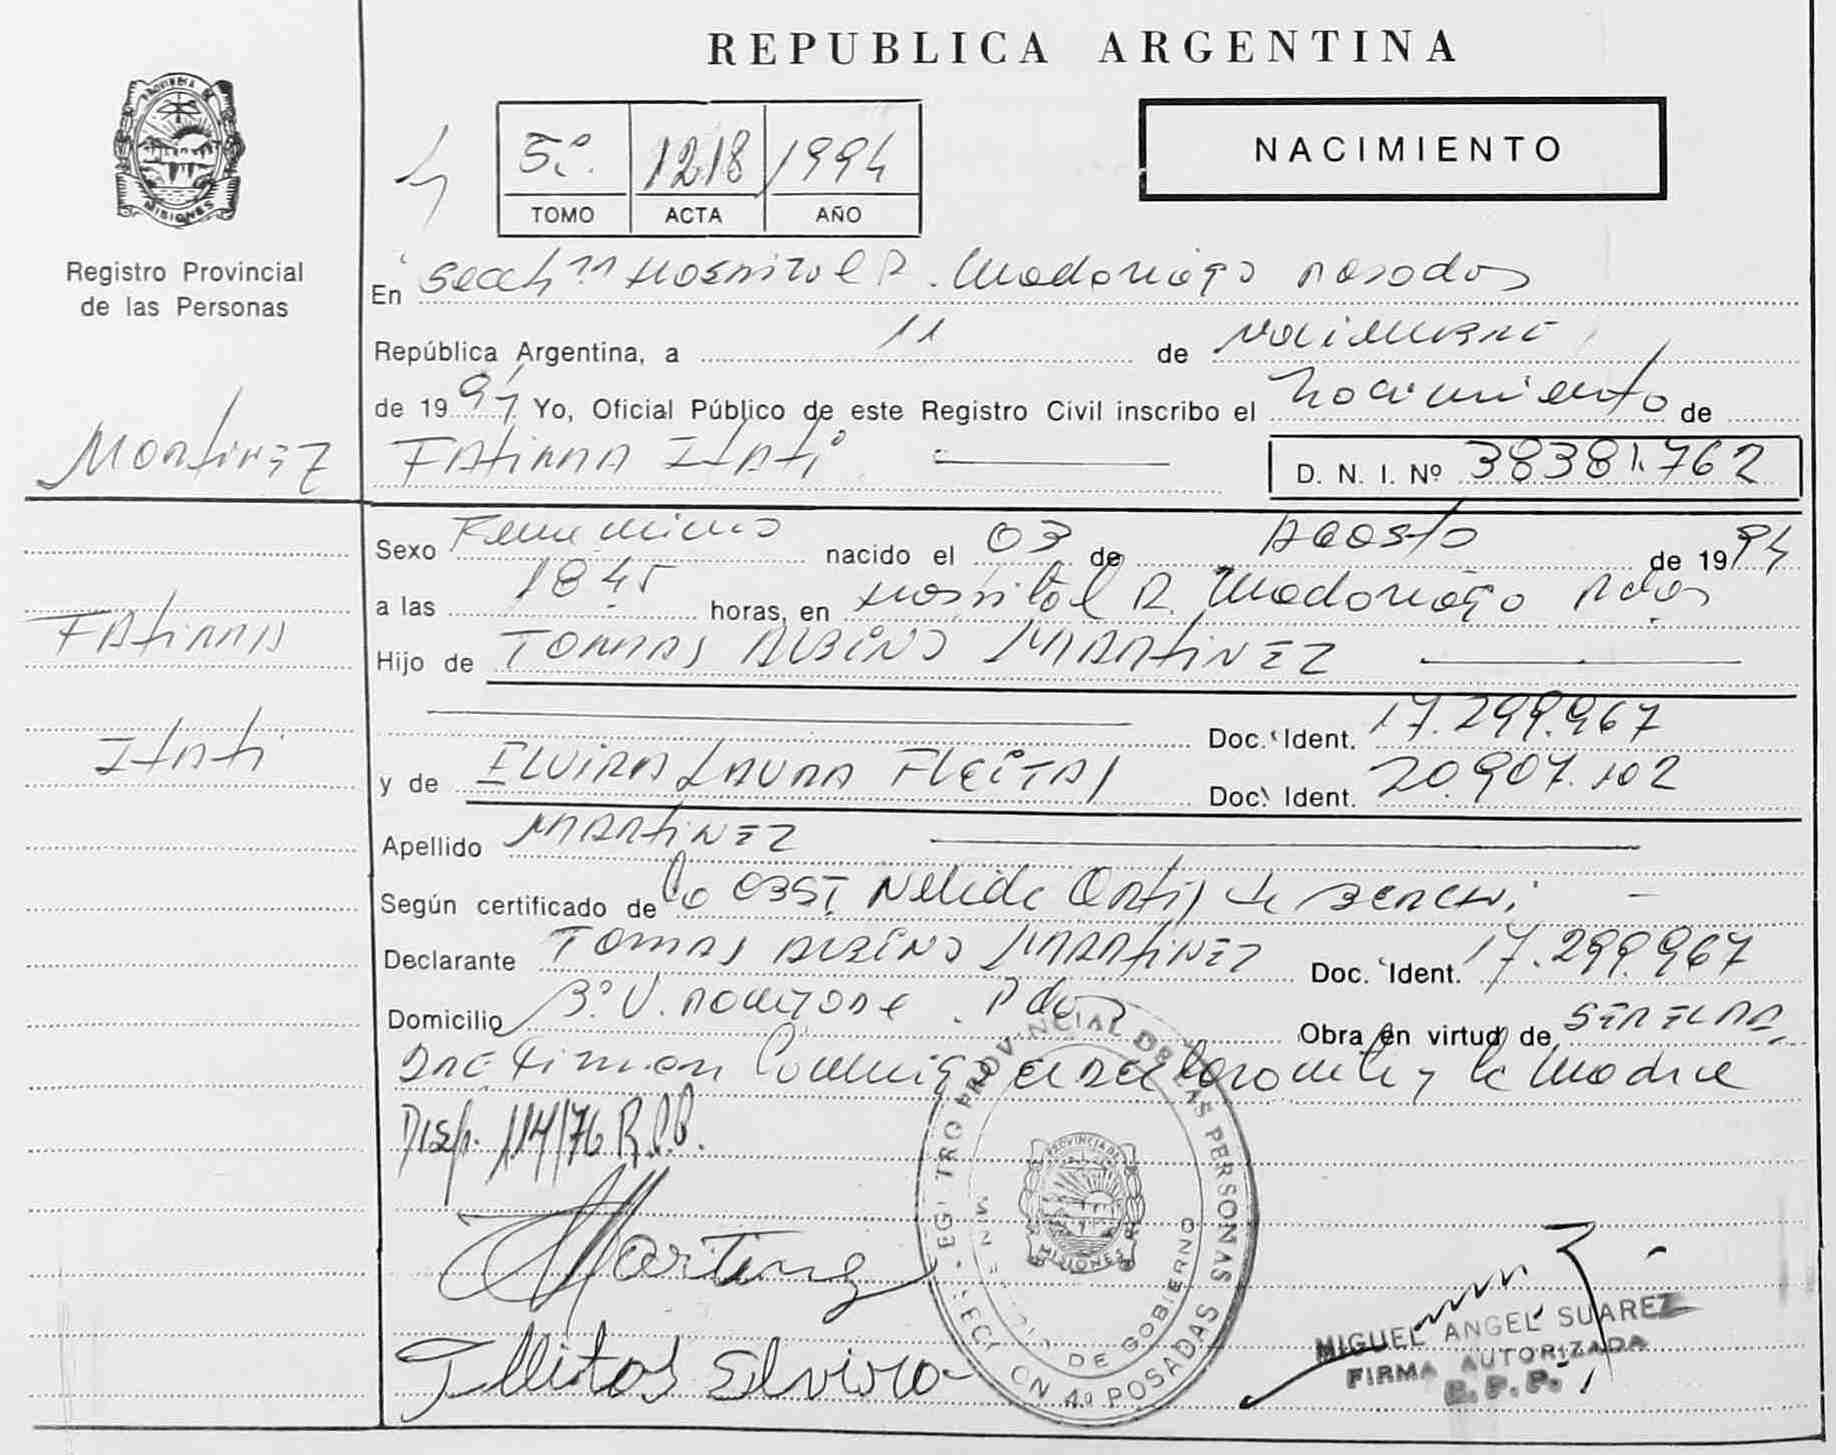 REPUBLICA ARGENTINA
PROVINCIA DE
MISIONES
Registro Provincial
de las Personas
5º. 1218 1994
TOMO ACTA AÑO
NACIMIENTO
En Secc 4ª Hospital R. Madariaga Posadas
República Argentina, a 11 de Noviembre
de 1994 Yo, Oficial Público de este Registro Civil inscribo el nacimiento de
Martinez
FAtimA ItAtí D. N. I. Nº 38381.762
Sexo Femenino nacido el 03 de Agosto de 1994
a las 18.45 horas, en Hospital R. Madariaga Pdas
FAtimA
Hijo de TOMAS ALBINO MARtiNEZ
ItAti
Doc. Ident. 17.299.967
y de ELVIRA LAURA FLEITAS Doc. Ident. 20.907.102
Apellido MARtiNEZ
Según certificado de la OBST Nelida Ortiz de
Declarante TOMAS ALBINO MARtiNEZ Doc. Ident. 17.299.967
Domicilio Bº U. Pdas Obra en virtud de
Firman Conmigo el declarante y la Madre
Disp. 114/76 R.P.P.
Martinez
Elvira
REGISTRO PROVINCIAL DE LAS PERSONAS
MINISTERIO DE GOBIERNO
PROVINCIA DE
MISIONES
SECCION 4ª POSADAS
MIGUEL ANGEL SUAREZ
FIRMA AUTORIZADA
R. P. P.